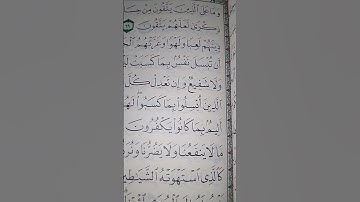 وَمَا عَلَى الَّذِينَ يَتَّقُونَ مِنْ
ذِكْرَى لَعَلَّهُمْ يَتَّقُونَ ٦٩
دِينَهُمْ لَعِبًا وَلَهْوًا وَغَرَّتْهُمُ
أَنْ تُبْسَلَ نَفْسٌ بِمَا كَسَبَتْ
وَلَا شَفِيعٌ وَإِنْ تَعْدِلْ كُلَّ
الَّذِينَ أُبْسِلُوا بِمَا كَسَبُوا لَهُمْ
أَلِيمٌ بِمَا كَانُوا يَكْفُرُونَ
مَا لَا يَنْفَعُنَا وَلَا يَضُرُّنَا وَنُرَدُّ
كَالَّذِي اسْتَهْوَتْهُ الشَّيَاطِينُ